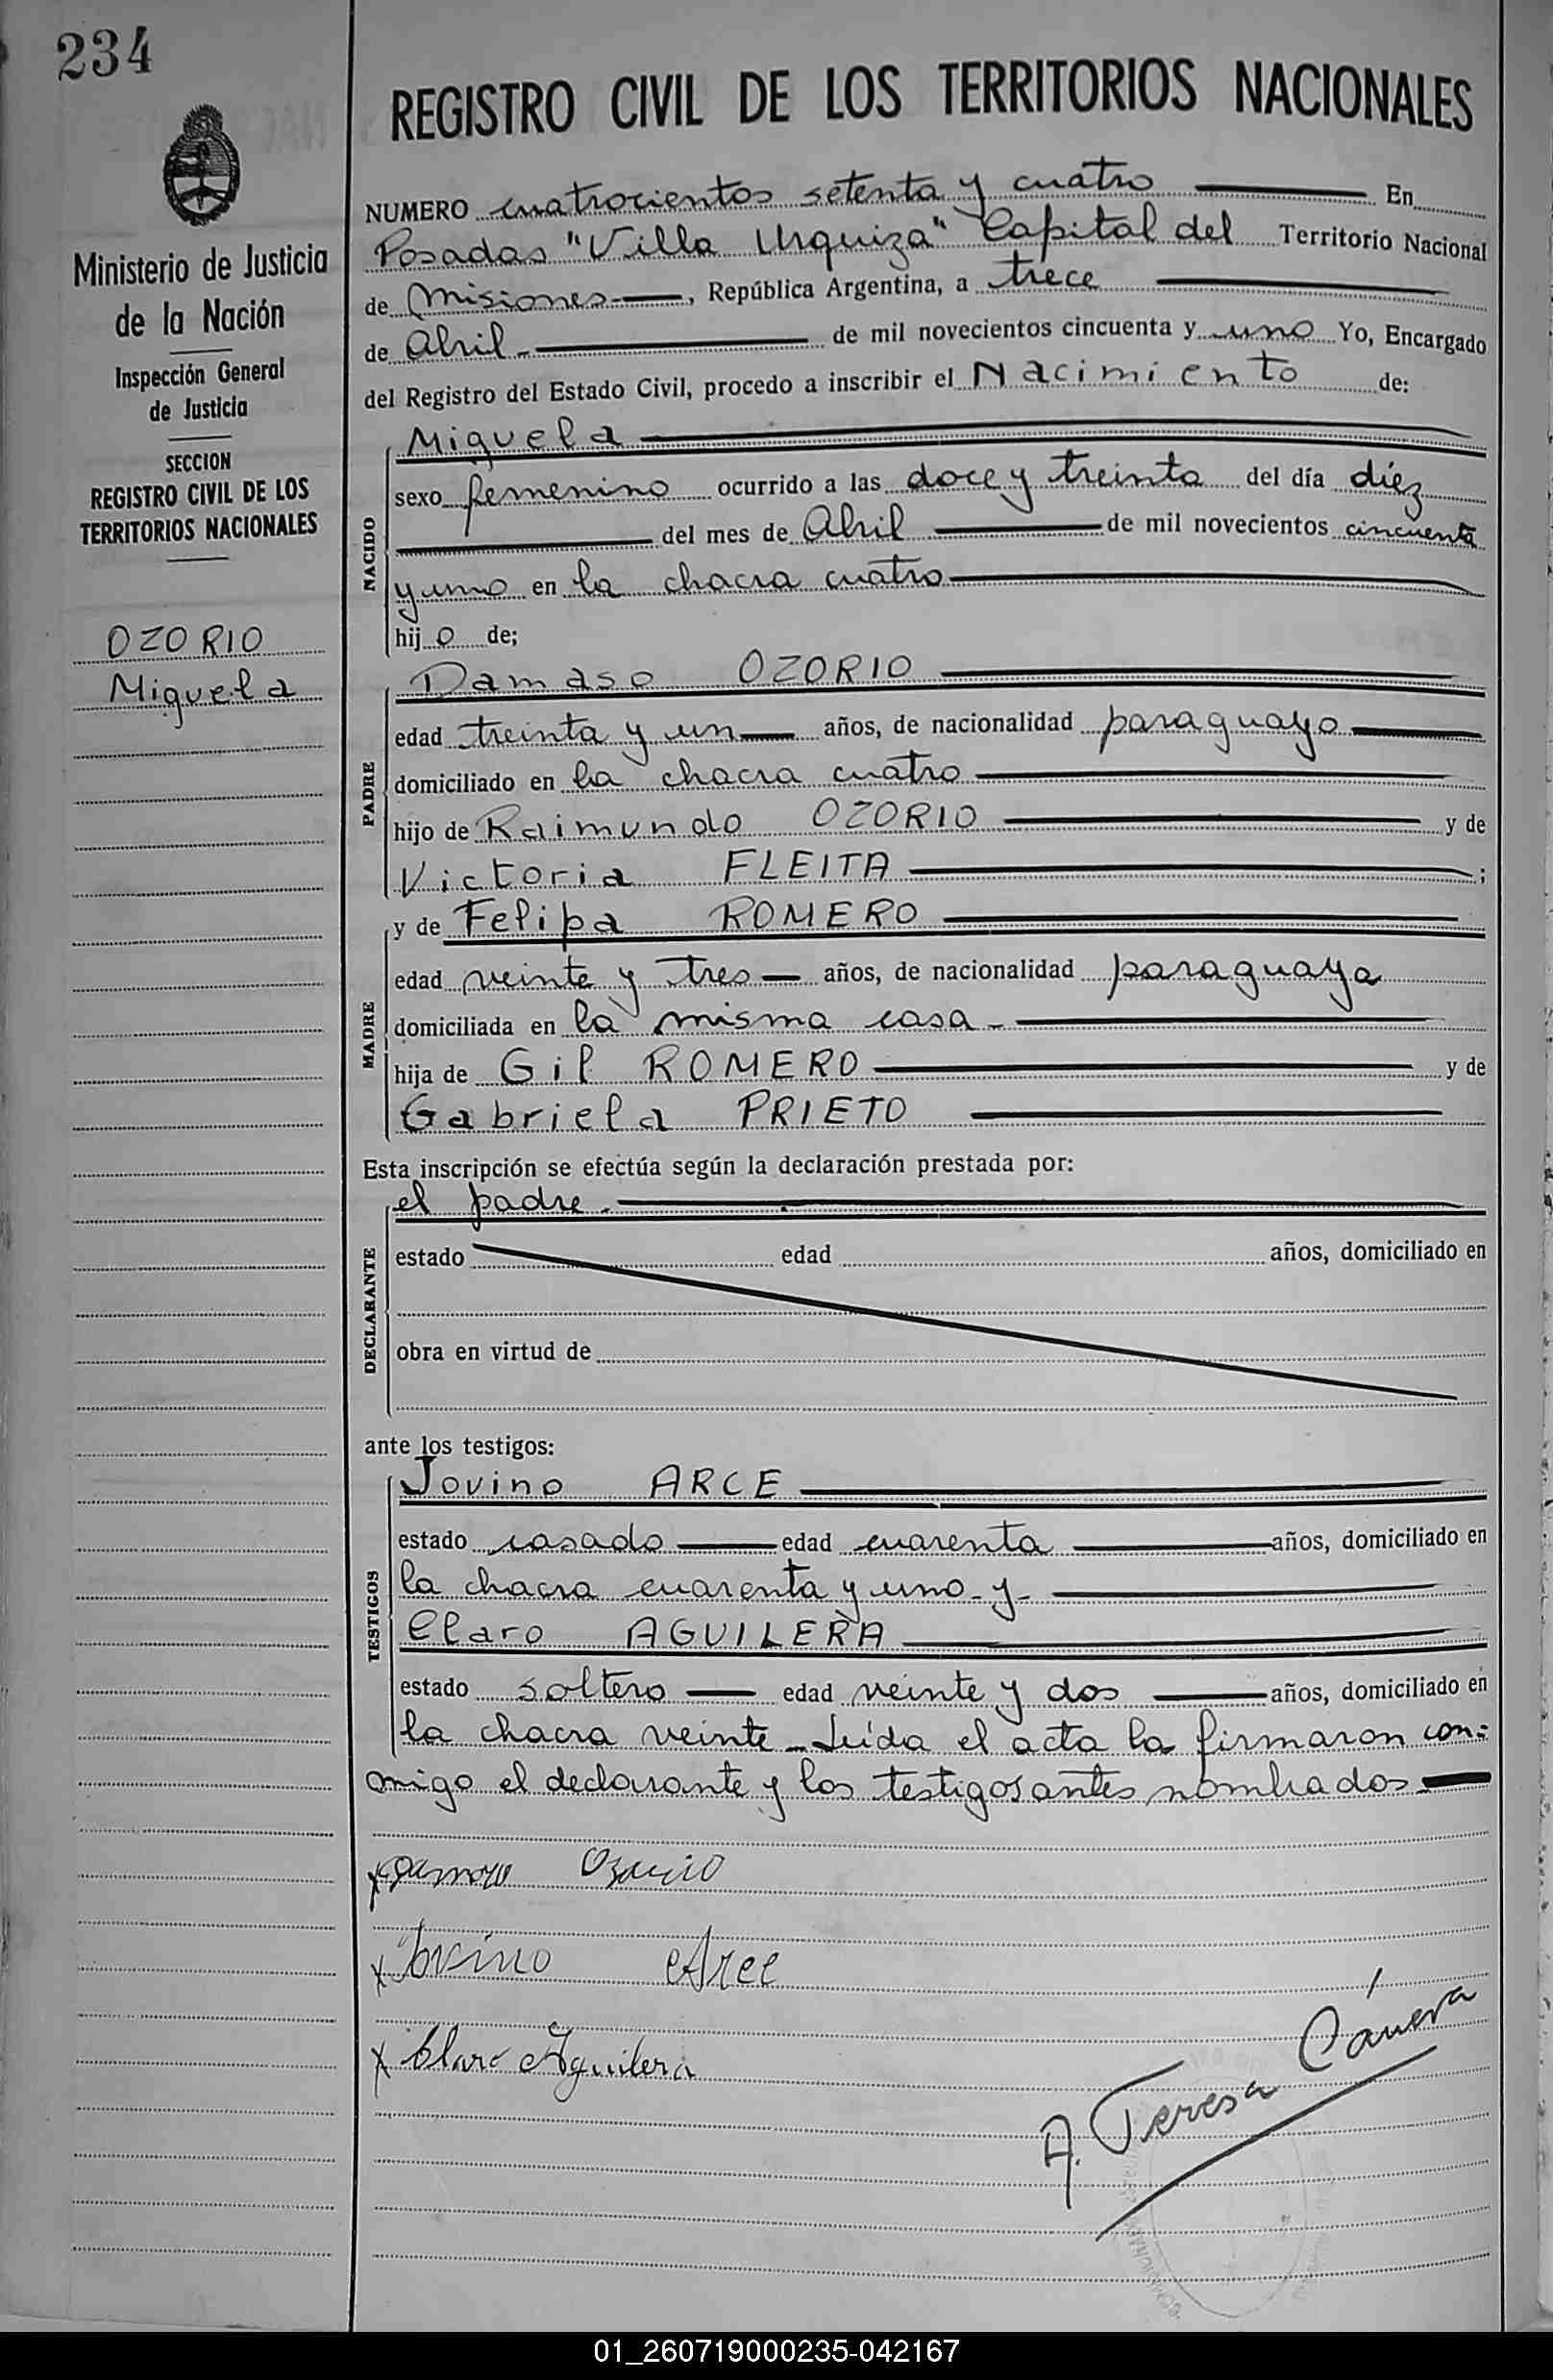 234
Ministerio de Justicia
de la Nación
Inspección General
de Justicia
SECCION
REGISTRO CIVIL DE LOS
TERRITORIOS NACIONALES
OZORIO
Miguela
REGISTRO CIVIL DE LOS TERRITORIOS NACIONALES
NUMERO cuatrocientos setenta y cuatro En
Posadas "Villa Urquiza" Capital del Territorio Nacional
de Misiones, República Argentina, a trece
de Abril de mil novecientos cincuenta y uno Yo, Encargado
del Registro del Estado Civil, procedo a inscribir el Nacimiento de:
NACIDO
Miguela
sexo femenino ocurrido a las doce y treinta del día diez
del mes de Abril de mil novecientos cincuenta
y uno en la chacra cuatro
hijo de;
PADRE
Damaso OZORIO
edad treinta y un años, de nacionalidad paraguayo
domiciliado en la chacra cuatro
hijo de Raimundo OZORIO y de
Victoria FLEITA ;
MADRE
y de Felipa ROMERO
edad veinte y tres años, de nacionalidad paraguaya
domiciliada en la misma casa
hija de Gil ROMERO y de
Gabriela PRIETO
Esta inscripción se efectúa según la declaración prestada por:
DECLARANTE
el padre.
estado edad años, domiciliado en
obra en virtud de
ante los testigos:
TESTIGOS
Jovino ARCE
estado casado edad cuarenta años, domiciliado en
la chacra cuarenta y uno - y -
Claro AGUILERA
estado soltero edad veinte y dos años, domiciliado en
la chacra veinte - Leída el acta la firmaron con-
migo el declarante y los testigos antes nombrados
x Damaso Ozorio
x Jovino Arce
x Claro Aguilera
A. Teresa Cánera
01_260719000235-042167